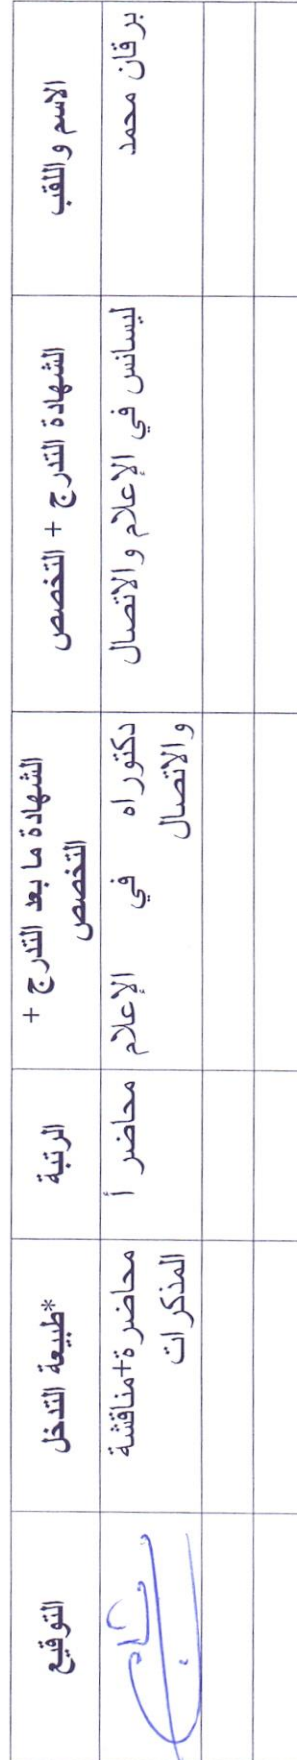 الاسم واللقب
الشهادة التدرج + التخصص
الشهادة ما بعد التدرج +
التخصص
الرتبة
*طبيعة التدخل
التوقيع
برقان محمد
ليسانس في الإعلام والاتصال
دكتوراه في الإعلام
والاتصال
محاضر أ
محاضرة+مناقشة
المذكرات